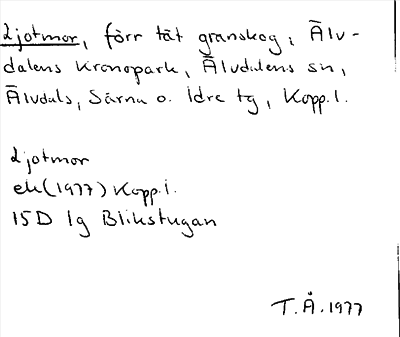 Ljotmor, förr tät granskog i Älv-
dalens Kronopark, Älvdalens sn,
Älvdals, Särna o. Idre tg, Kopp.l.
Ljotmor
ek (1977) Kopp.l.
15D 1g Blikstugan
T.Å. 1977